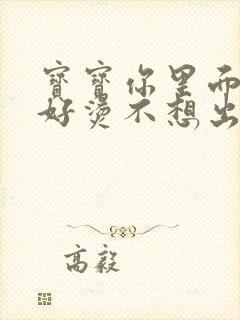 寶寶你里面
好燙不想出
高毅